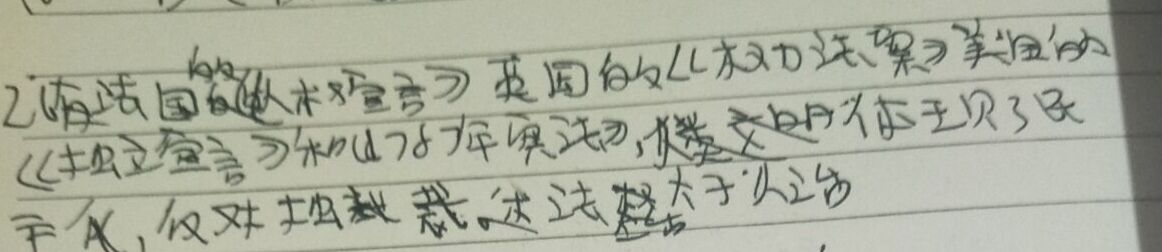 2、有法国的《人权宣言》英国的《权力法案》美国的
《独立宣言》和《1787年宪法》,文明体现了民
主化,反对独裁。法大于